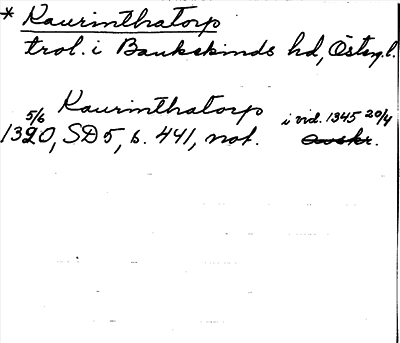 * Kaurinthatorp
trol. i Bankekinds hd, Östergl.
Kaurinthatorp i vid. 1345 20/4
5/6 1320, SD 5, s. 441, not. Avskr.